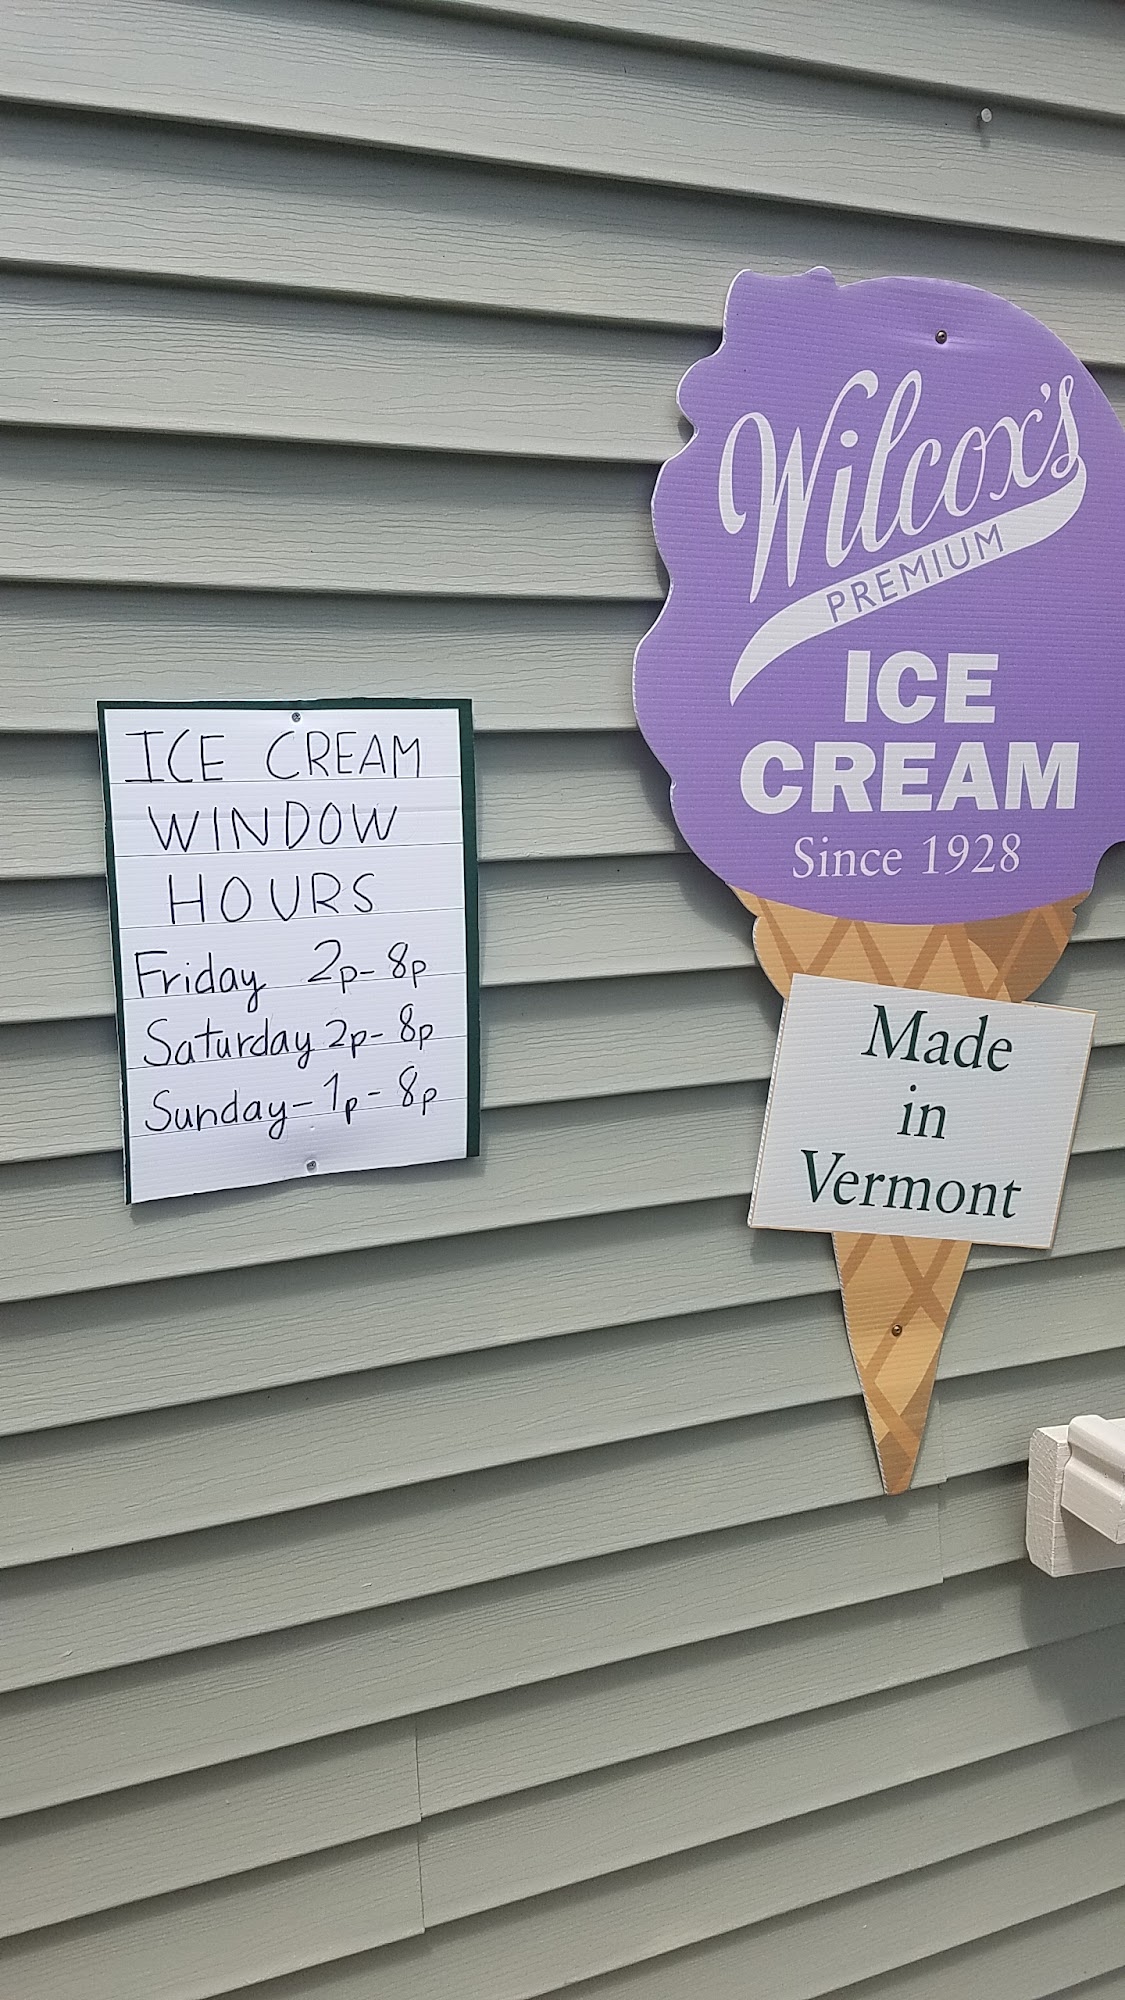 ICE CREAM
WINDOW
HOURS
Friday 2p-8p
Saturday 2p-8p
Sunday-1p-8p
Wilcox's
PREMIUM
ICE
CREAM
Since 1928
Made
in
Vermont